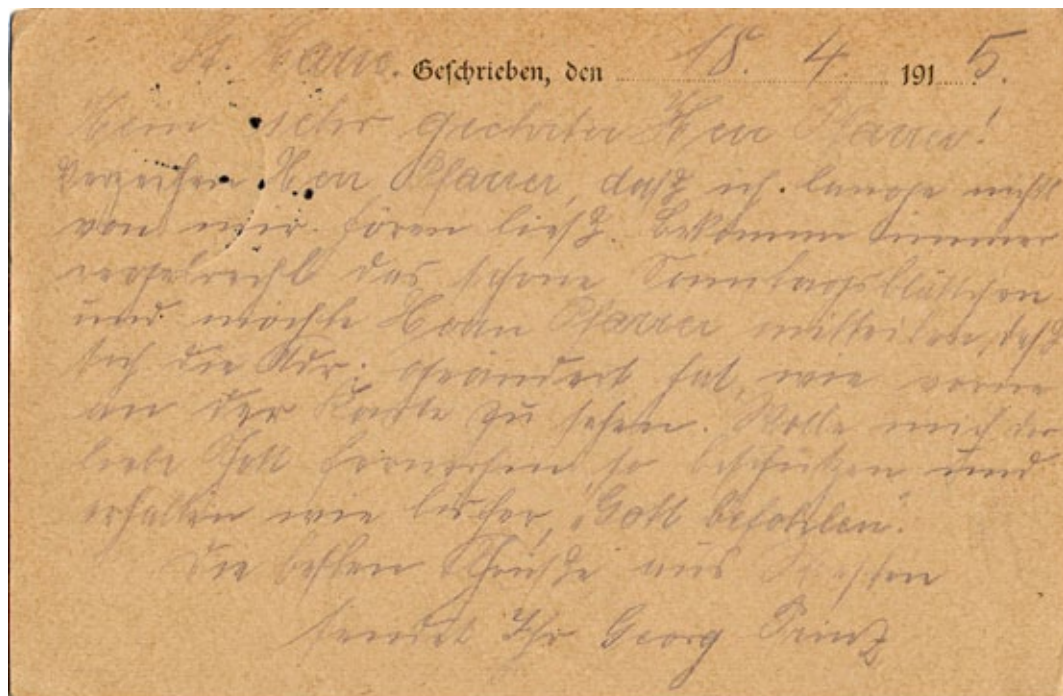 St. Marie. Geschrieben, den 18. 4. 1915.
Mein sehr geehrter Herr Pfarrer!
Verzeihen Herr Pfarrer, daß ich lange nicht
von mir hören ließ. Bekomme immer
regelrecht das schöne Sonntagsblättchen
und möchte Herrn Pfarrer mitteilen, daß
sich die Adr: geändert hat, wie vorne
an der Karte zu sehen. Wolle mich der
liebe Gott fernerhin so beschützen und
erhalten wie bisher, "Gott befohlen".
Die besten Grüße aus
sendet Ihr Georg